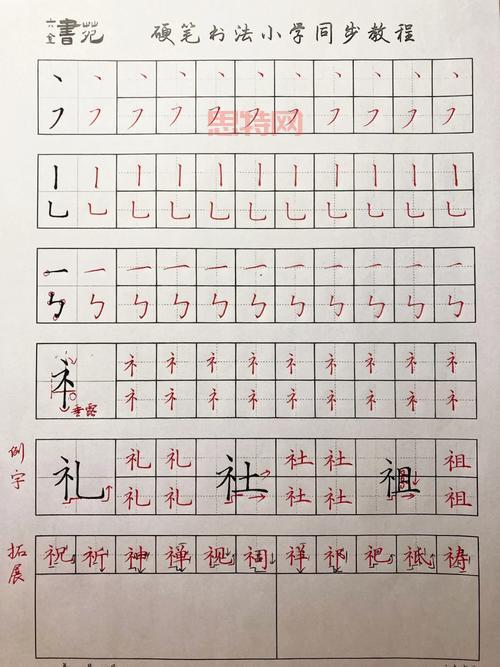 六全書苑 硬笔书法小学同步教程
丶 丶 丶 丶 丶 丶 丶 丶 丶 丶 丶
㇇ ㇇ ㇇ ㇇ ㇇ ㇇ ㇇ ㇇ ㇇ ㇇ ㇇
思特网
丨 丨 丨 丨 丨 丨 丨 丨 丨 丨 丨
乚 乚 乚 乚 乚 乚 乚 乚 乚 乚 乚
一 一 一 一 一 一 一 一 一 一 一
ㄣ ㄣ ㄣ ㄣ ㄣ ㄣ ㄣ ㄣ ㄣ ㄣ ㄣ
礻 礻 礻 礻 礻 礻 礻 礻 礻 礻
礻 礻 礻 礻 礻 礻 礻 礻 礻
垂露
例字
礼 礼 礼 社 社 社 祖 祖
礼 礼 社 社 祖
拓展
祝 祈 神 禅 视 祥 祁 祀 祗 祷